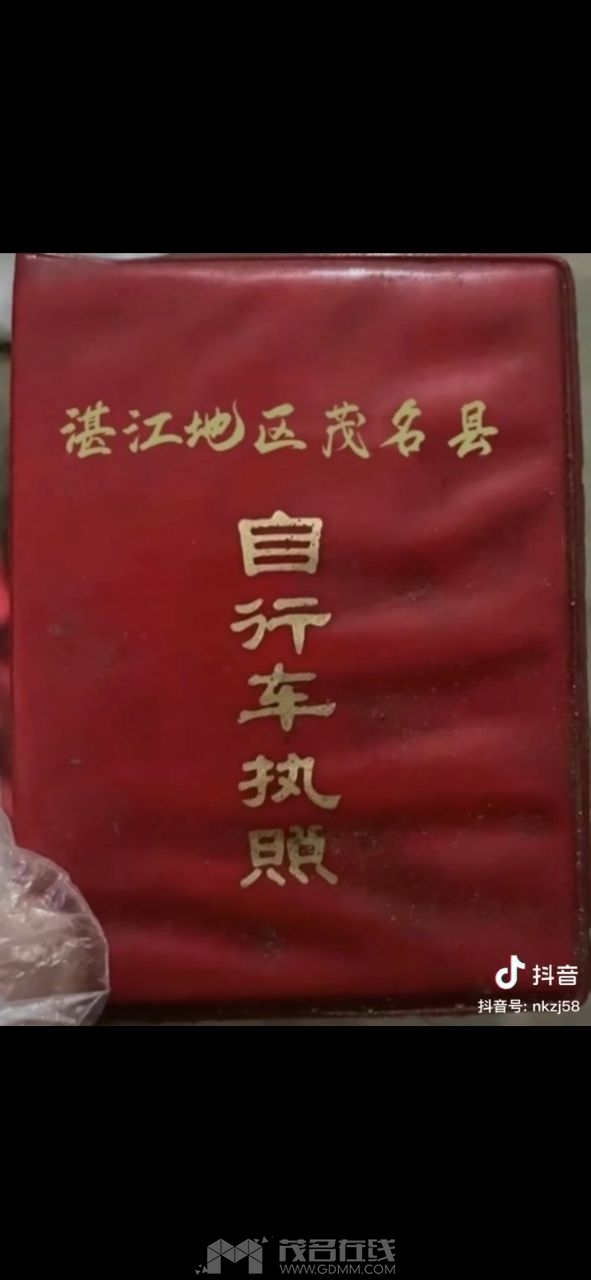 湛江地区茂名县
自行车执照
抖音
抖音号: nkzj58
茂名在线
WWW.GDMM.COM